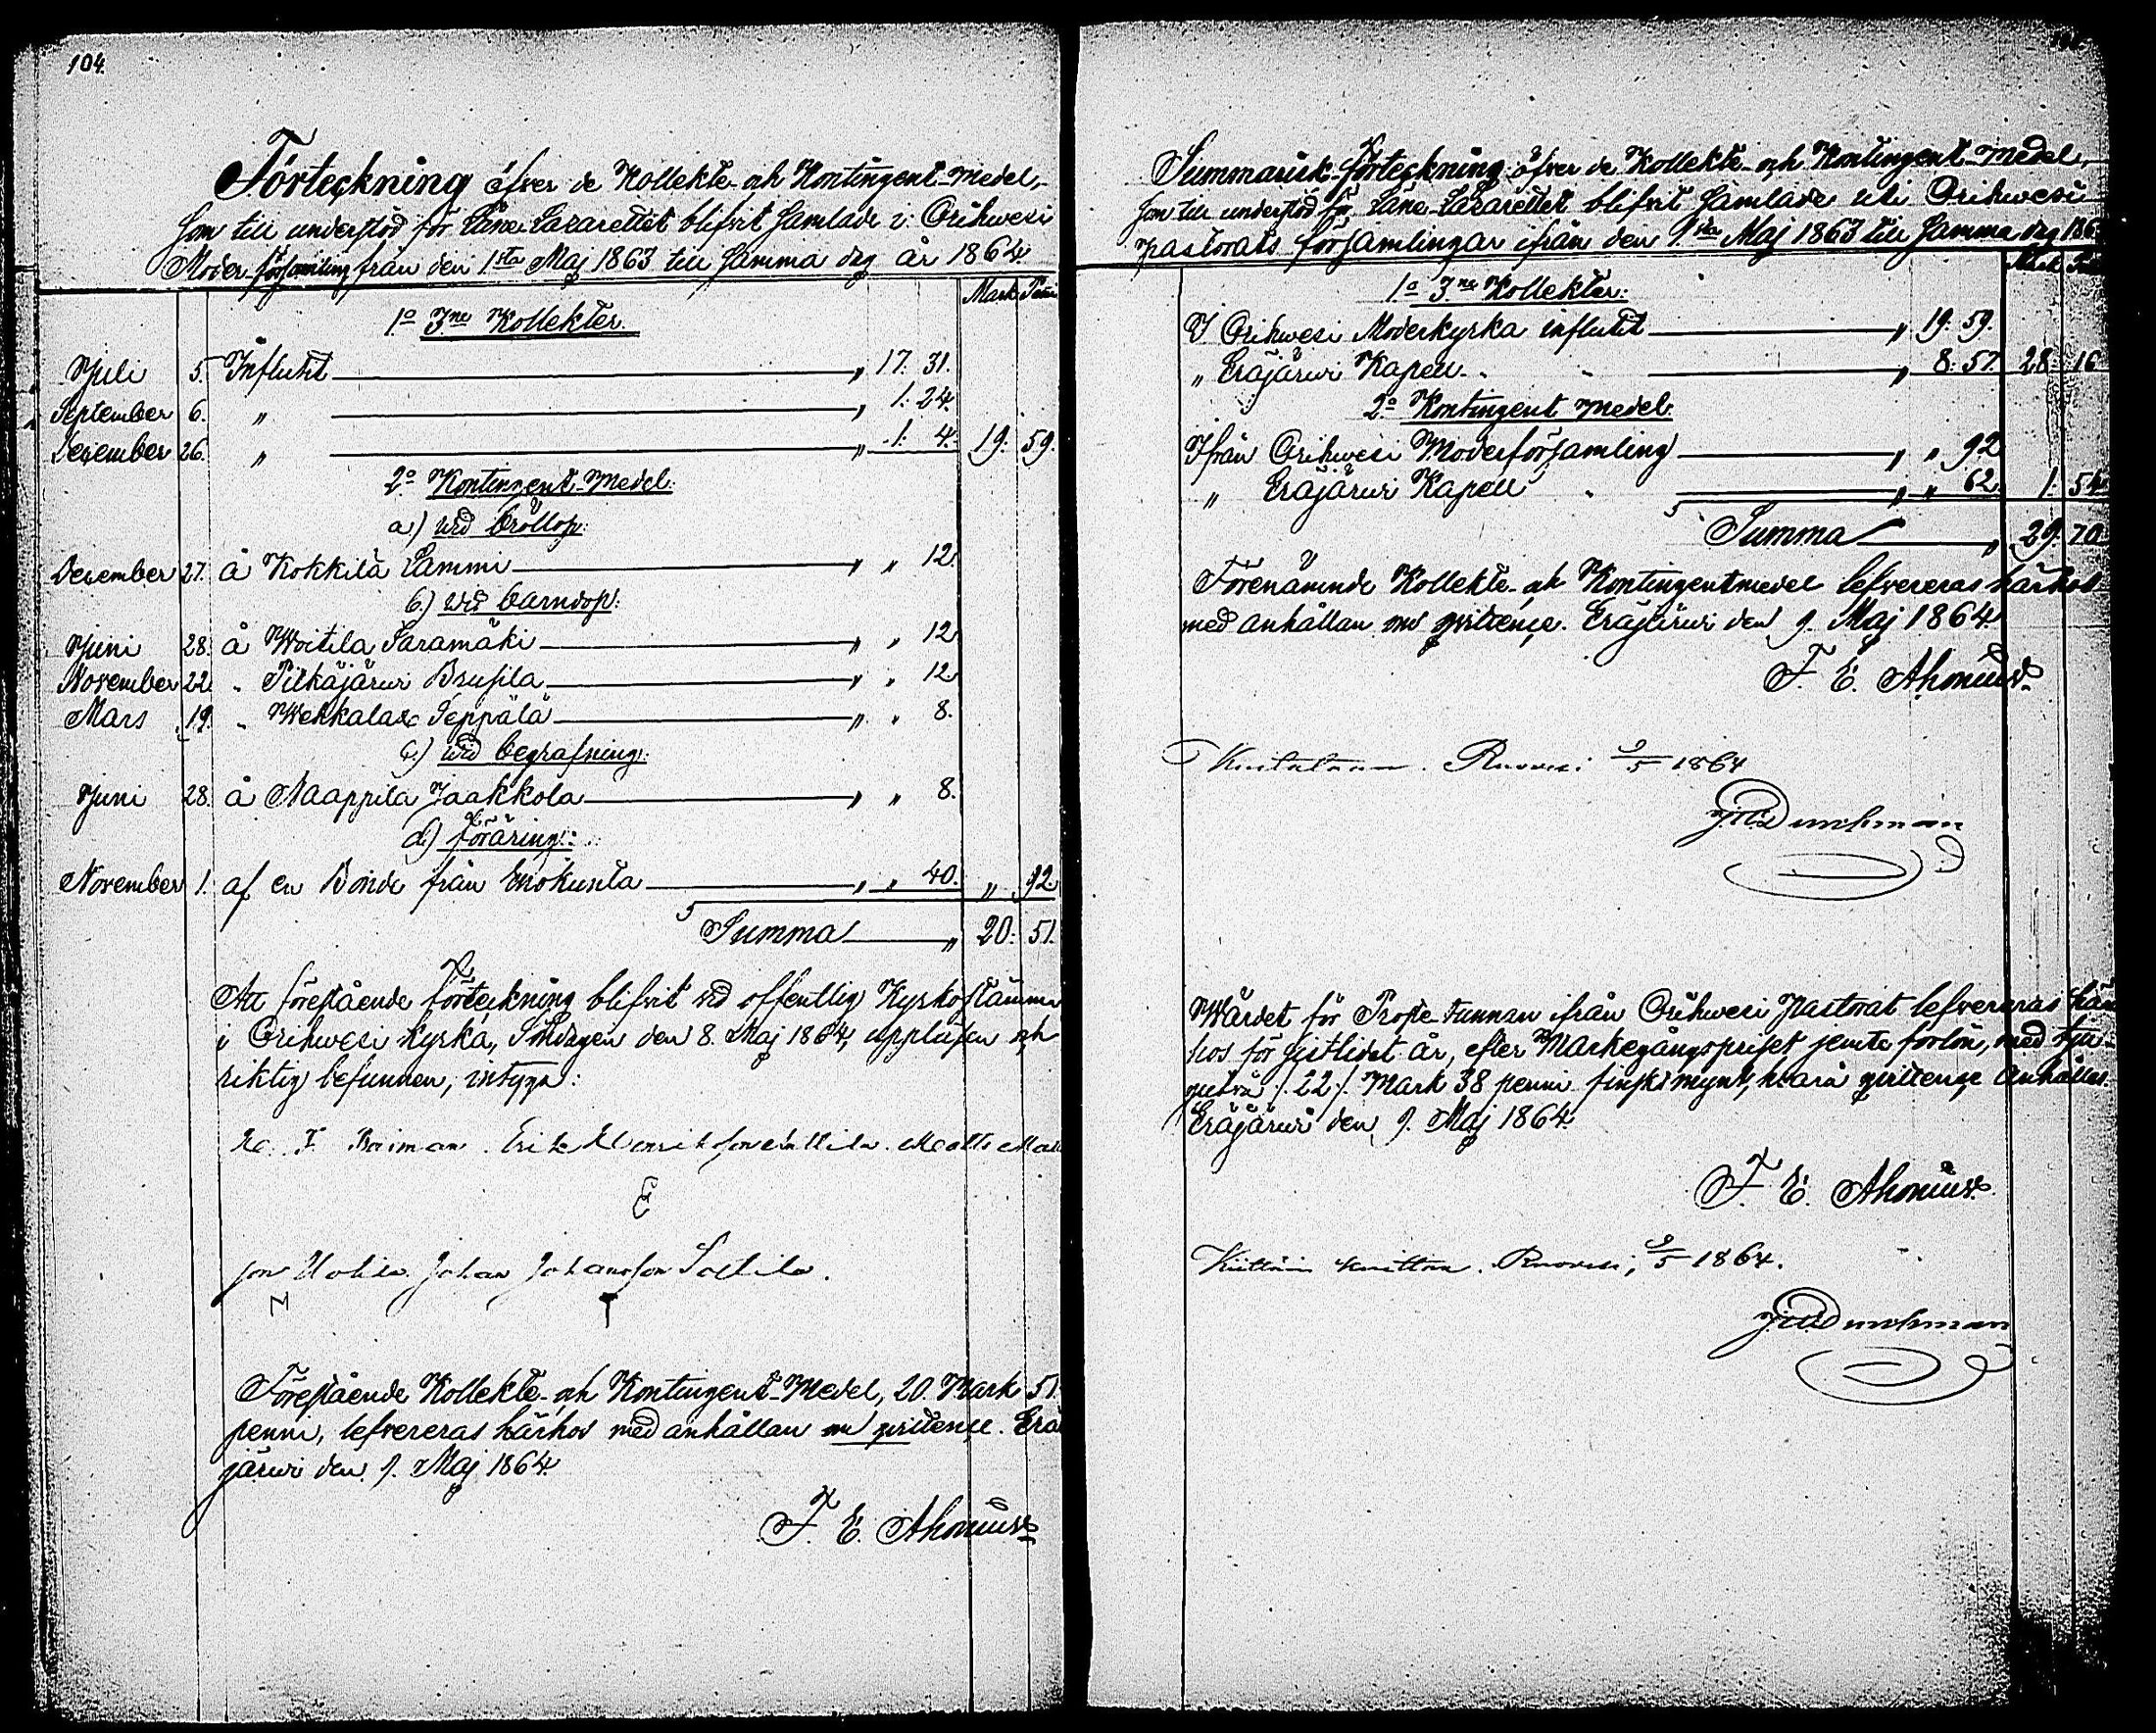 104.
Förteckning öfver de Kollekte- och Kontingent-Medel,
som till understöd för Läne Lazarettet blifvit samlade i Orihwesi
Moder församling från den 1sta Maj 1863 till samma dag år 1864
Mark Penni
1o 3ne Kollekter.
Juli 5. Influtit — „ 17. 31.
September 6. „ — „ 1. 24.
December 26. „ — „ 1. 4. 19. 59.
2o Kontingent-Medel:
a) wid bröllop:
December 27. å Kokkila Lammi — „ „ 12.
b.) wid barndop:
Juni 28. å Woitila Saramäki — „ „ 12
November 22 „ Pitkäjärwi Brusila — „ „ 12
Mars 19. „ Wekkala Seppälä — „ „ 8.
c.) wid begrafning:
Juni 28. å Naappila Jaakkola — „ „ 8.
d) föräring:
November 1. af en Bonde från Enokunta — „ „ 40. „ 92
Summa — „ 20. 51.
Att förestående förteckning blifvit vid offentlig Kyrkostämma
i Orihwesi kyrka, Söndagen den 8. Maj 1864, uppläsen och
riktig befunnen, intyga:
F. Erik Henriksson Matts
son Uotila. Johan Johansson
Förestående Kollekte- och Kontingent-Medel, 20. Mark 51.
penni, lefvereras härhos med anhållan om qvittence. Erä
järwi den 9. Maj 1864.
F. E. Ahonius
Summarisk förteckning öfver de Kollekte- och Kontingent-Medel,
som till understöd för Läne-Lazarettet blifvit samlade uti Orihwesi
pastorats församlingar ifrån den 1sta Maj 1863 till samma dag 186
Mark
1o 3ne Kollekter:
I Orihwesi Moderkyrka influtit — „ 19. 59.
„ Eräjärwi Kapell „ — „ 8. 57. 28. 16
2o Kontingent Medel.
Ifrån Orihwesi Moderförsamling — „ „ 92
„ Eräjärwi Kapell „ — „ „ 62. 1. 54
Summa — „ 29. 70
Förenämnde Kollekte- och Kontingentmedel lefvereras härhos
med anhållan om qvittence. Eräjärwi den 9. Maj 1864.
F. E. Ahonius
Kuitataan. Ruovesi 9/5 1864
Durchman
Wärdet för Proste-tunnan ifrån Orihwesi Pastorat lefvereras här
hos för sistlidet år, efter Markegångspriset jemte forlön, med tju-
gutvå /:22:/ Mark 38 penni finskt mynt, hvarå qvittence anhålles.
Eräjärwi den 9. Maj 1864.
F. E. Ahonius
Kiittäin kuittaa. Ruovesi, 9/5 1864.
Durchman